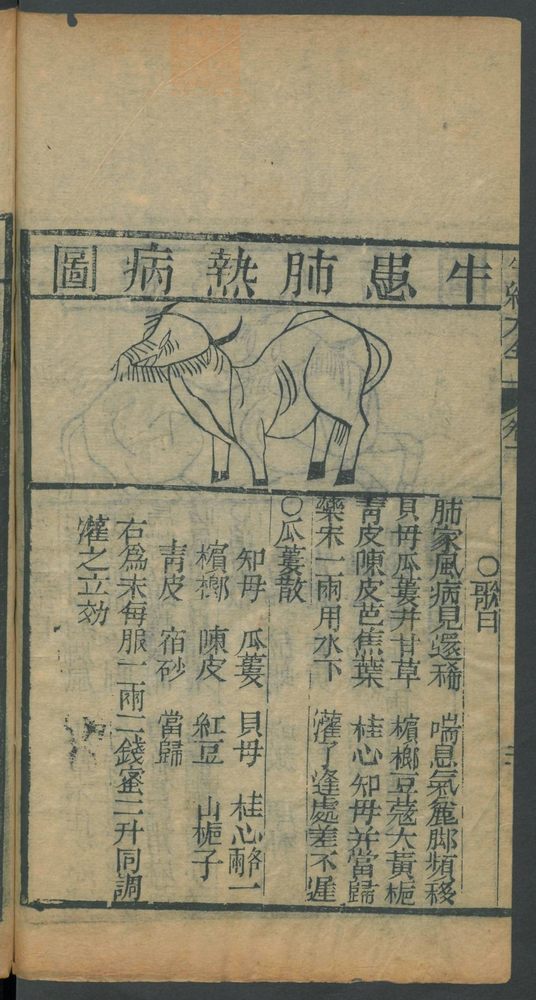 牛患肺熱病圖
○歌曰
肺家風病見還稀　喘息氣麄脚頻移
貝母瓜蔞并甘草　檳榔豆蔻大黃梔
青皮陳皮芭焦葉　桂心知母并當歸
藥末二兩用水下　灌了逢處差不遲
○瓜蔞散
知母　瓜蔞　貝母　桂心各一兩
檳榔　陳皮　紅豆　山梔子
青皮　宿砂　當歸
右爲末每服一兩二錢蜜二升同調
灌之立効